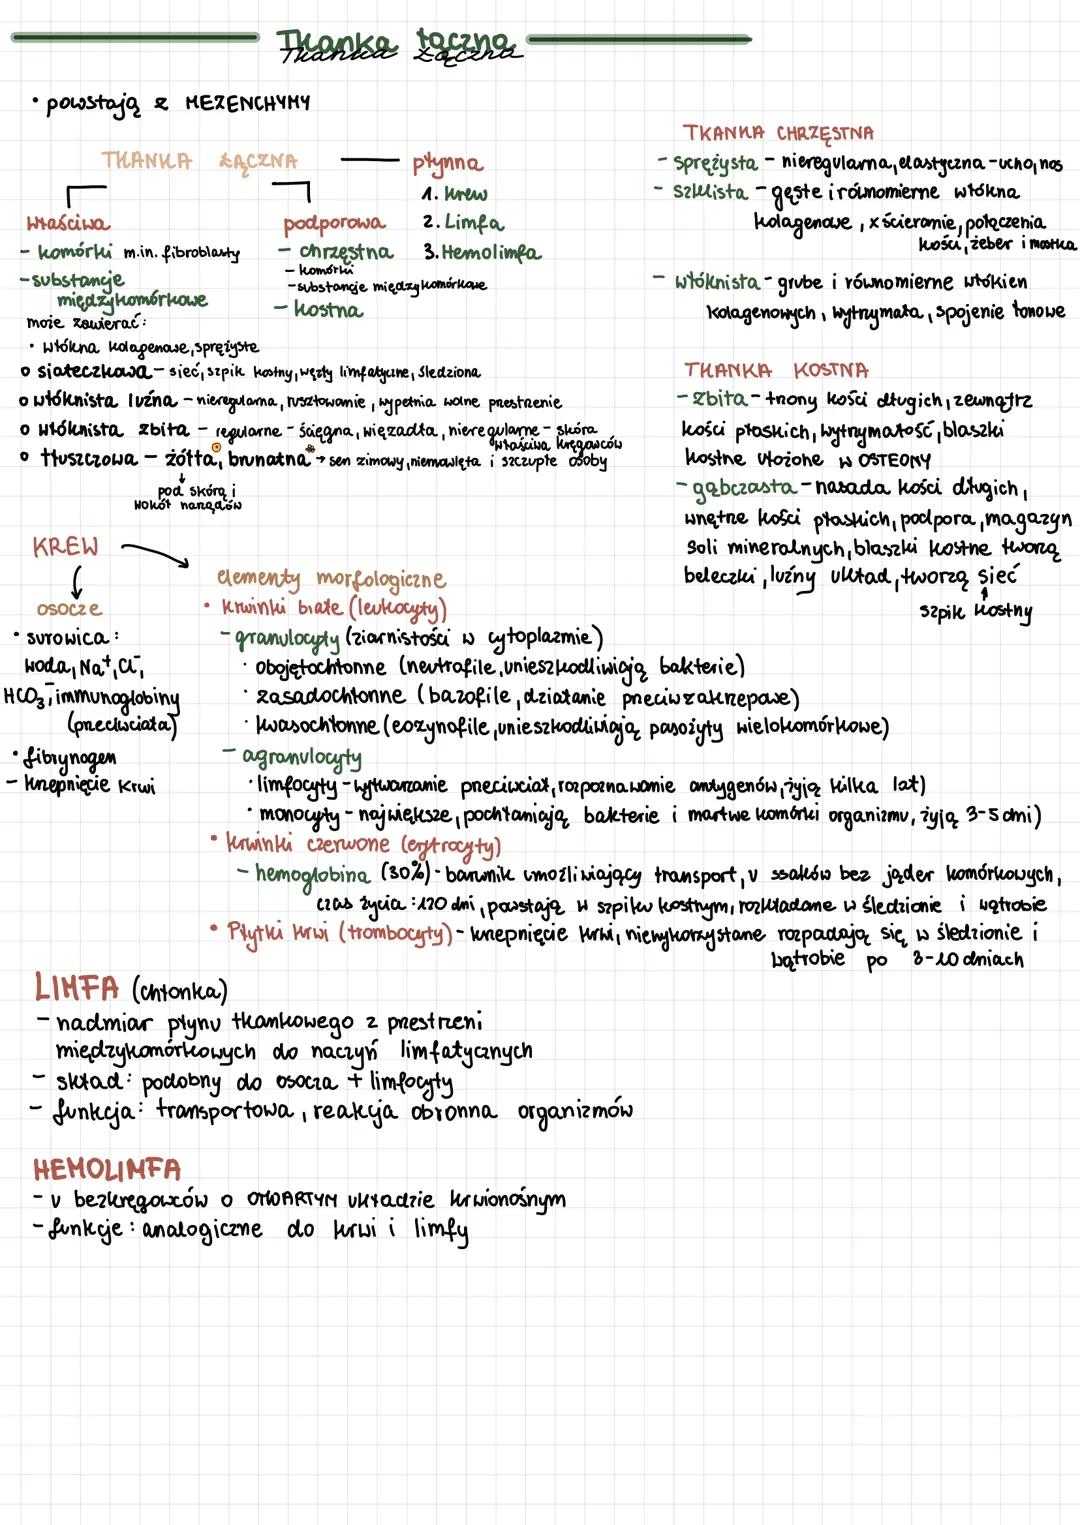 Tkanka łączna
Tkanka Łączna
• powstają z MEZENCHYMY
TKANKA ŁĄCZNA
właściwa
- komórki m.in. fibroblasty
- substancje
międzykomórkowe
może zawierać:
• włókna kolagenowe, sprężyste
podporowa
- chrzęstna
- komórki
- substancje międzykomórkowe
- kostna
płynna
1. Krew
2. Limfa
3. Hemolimfa
o siateczkowa - sieć, szpik kostny, węzły limfatyczne, śledziona
o włóknista luźna - nieregularna, rusztowanie, wypełnia wolne przestrzenie
o włóknista zbita - regularne - ścięgna, więzadła, nieregularne - skóra
właściwa kręgowców
o tłuszczowa - żółta, brunatna → sen zimowy, niemowlęta i szczupłe osoby
↓
pod skórą i
wokół narządów
TKANKA CHRZĘSTNA
- sprężysta - nieregularna, elastyczna - ucho, nos
- szklista - gęste i równomierne włókna
kolagenowe, x ścieranie, połączenia
kości, żeber i mostka
- włóknista - grube i równomierne włókien
kolagenowych, wytrzymała, spojenie łonowe
TKANKA KOSTNA
- zbita - trzony kości długich, zewnątrz
kości płaskich, wytrzymałość, blaszki
kostne ułożone w OSTEONY
- gąbczasta - nasada kości długich,
wnętrze kości płaskich, podpora, magazyn
soli mineralnych, blaszki kostne tworzą
beleczki, luźny układ, tworzą sieć
↑
szpik kostny
KREW
osocze
• surowica:
woda, Na⁺, Cl⁻,
HCO₃⁻, immunoglobiny
(przeciwciała)
• fibrynogen
- krzepnięcie krwi
elementy morfologiczne
• krwinki białe (leukocyty)
- granulocyty (ziarnistości w cytoplazmie)
· obojętochłonne (neutrafile, unieszkodliwiają bakterie)
· zasadochłonne (bazofile, działanie przeciwzakrzepowe)
· kwasochłonne (eozynofile, unieszkodliwiają pasożyty wielokomórkowe)
- agranulocyty
· limfocyty - wytwarzanie przeciwciał, rozpoznawanie antygenów, żyją kilka lat)
· monocyty - największe, pochłaniają bakterie i martwe komórki organizmu, żyją 3-5 dni)
• krwinki czerwone (erytrocyty)
- hemoglobina (30%) - barwnik umożliwiający transport, u ssaków bez jąder komórkowych,
czas życia: 120 dni, powstają w szpiku kostnym, rozkładane w śledzionie i wątrobie
• Płytki krwi (trombocyty) - krzepnięcie krwi, niewykorzystane rozpadają się w śledzionie i
wątrobie po 8-10 dniach
LIMFA (chłonka)
- nadmiar płynu tkankowego z przestrzeni
międzykomórkowych do naczyń limfatycznych
- skład: podobny do osocza + limfocyty
- funkcja: transportowa, reakcja obronna organizmów
HEMOLIMFA
- u bezkręgowców o OTWARTYM układzie krwionośnym
- funkcje: analogiczne do krwi i limfy